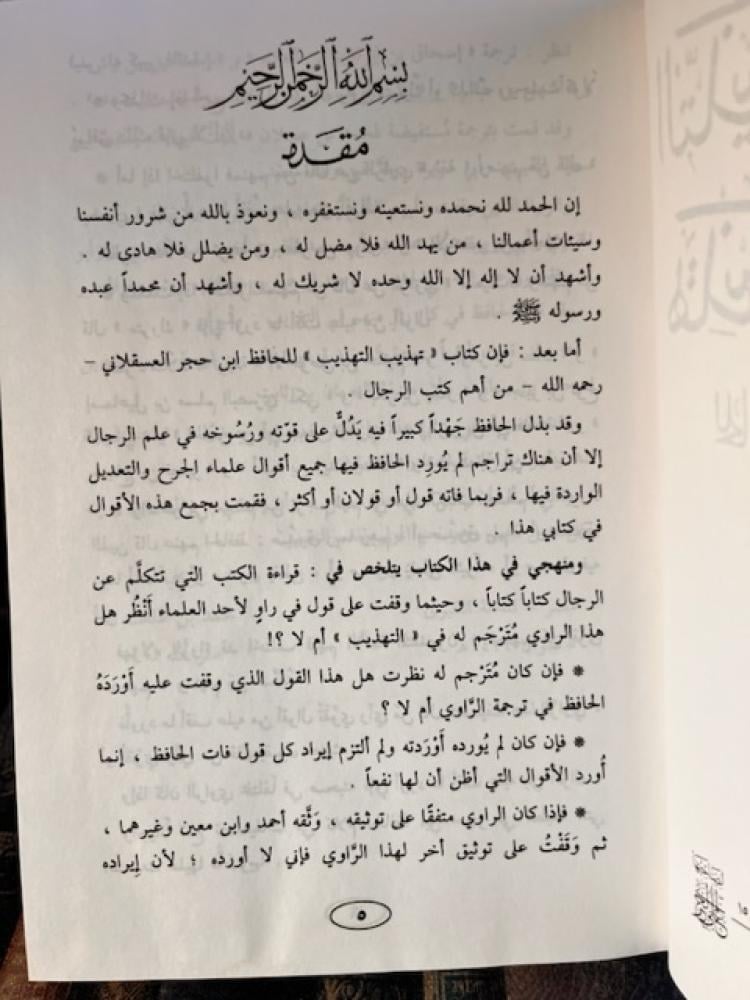 بسم الله الرحمن الرحيم
مُقدمة
إن الحمد لله نحمده ونستعينه ونستغفره ، ونعوذ بالله من شرور أنفسنا
وسيئات أعمالنا ، من يهد الله فلا مضل له ، ومن يضلل فلا هادى له .
وأشهد أن لا إله إلا الله وحده لا شريك له ، وأشهد أن محمداً عبده
ورسوله ﷺ .
أما بعد : فإن كتاب « تهذيب التهذيب » للحافظ ابن حجر العسقلاني –
رحمه الله – من أهم كتب الرجال .
وقد بذل الحافظ جَهْداً كبيراً فيه يَدُلُّ على قوّته ورُسُوخه في علم الرجال
إلا أن هناك تراجم لم يُورِد الحافظ فيها جميع أقوال علماء الجرح والتعديل
الواردة فيها ، فربما فاته قول أو قولان أو أكثر ، فقمت بجمع هذه الأقوال
في كتابي هذا .
ومنهجي في هذا الكتاب يتلخص في : قراءة الكتب التي تتكلَّم عن
الرجال كتاباً كتاباً ، وحيثما وقفت على قول في راوٍ لأحد العلماء أَنْظُر هل
هذا الراوي مُتَرْجَم له في « التهذيب » أم لا ؟!
* فإن كان مُتَرْجم له نظرت هل هذا القول الذي وقفت عليه أَوْرَدَهُ
الحافظ في ترجمة الرَّاوي أم لا ؟
* فإن كان لم يُورده أَوْرَدته ولم ألتزم إيراد كل قول فات الحافظ ، إنما
أُورد الأقوال التي أظن أن لها نفعاً .
* فإذا كان الراوي متفقًا على توثيقه ، وَثَّقه أحمد وابن معين وغيرهما ،
ثم وَقَفْتُ على توثيق أخر لهذا الرَّاوي فإني لا أورده ؛ لأن إيراده
٥